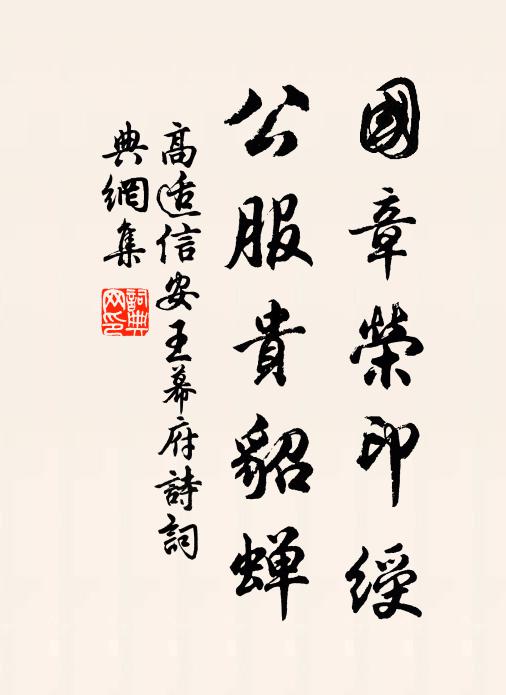 國章榮印綬
公服貴貂蟬
高適信安王幕府詩詞
典網集
詞典網印